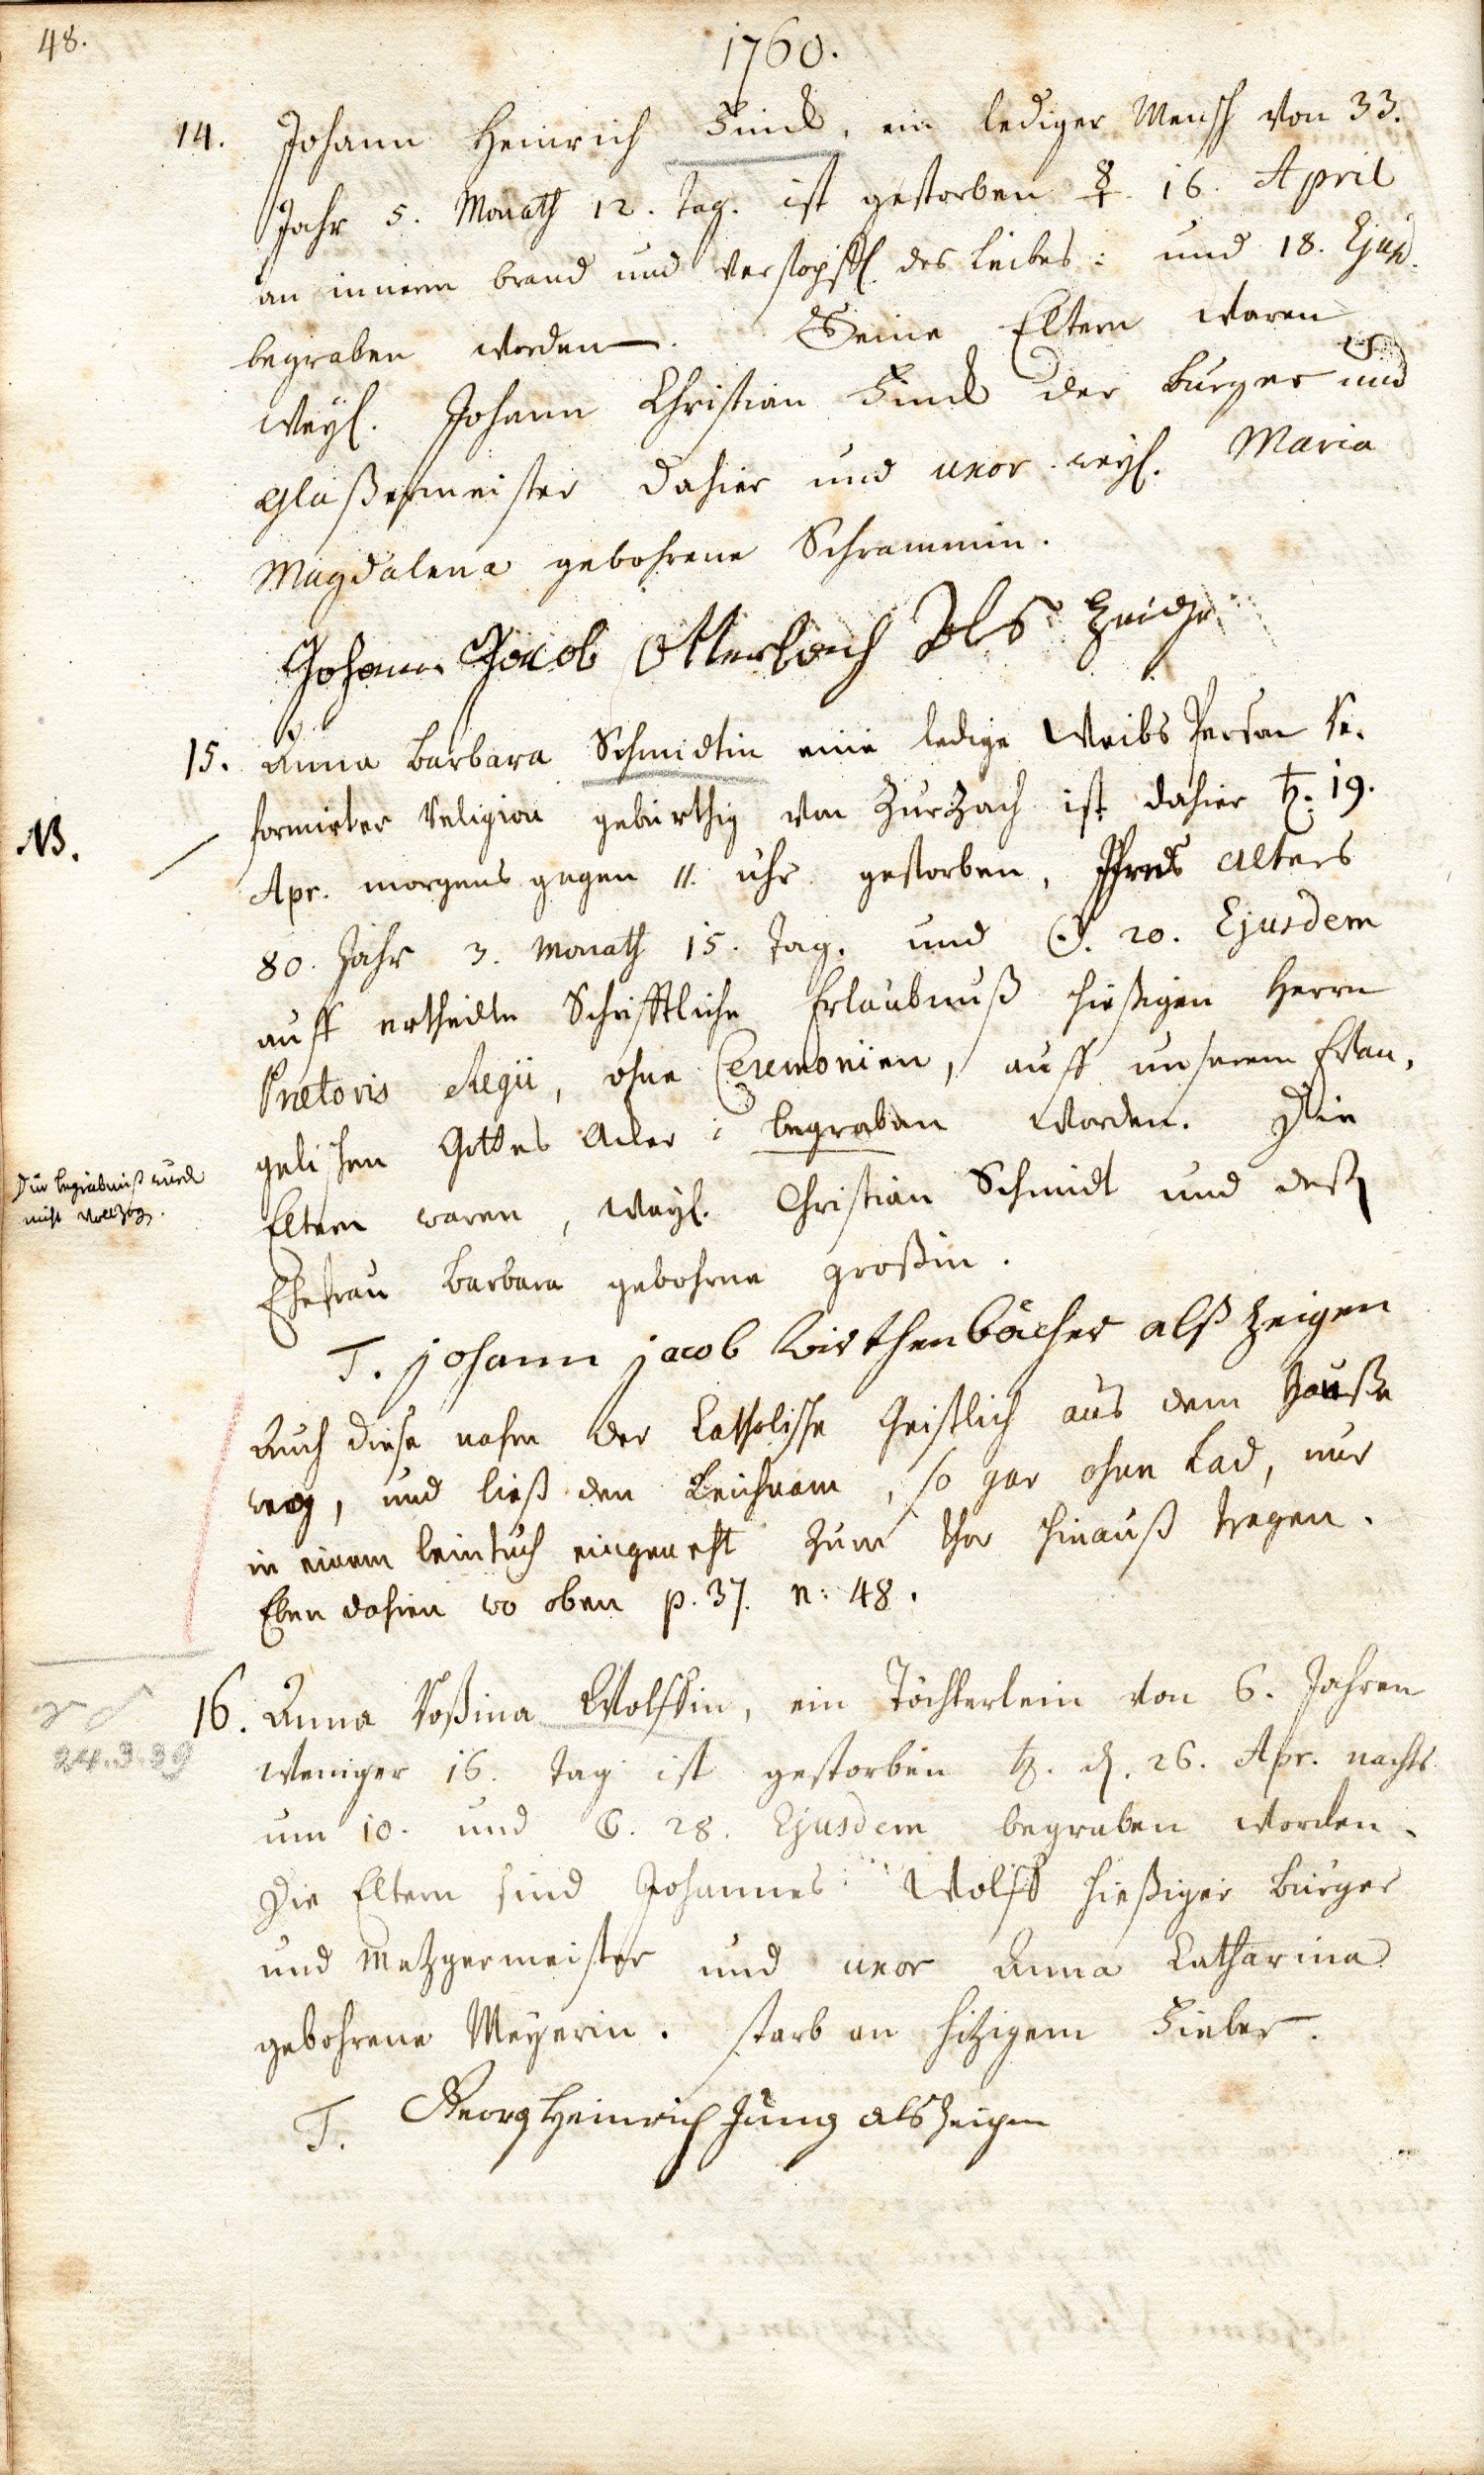 48.
1760.
14. Johann Heinrich Finck, ein lediger Mensch von 33.
Jahr 5. Monath 12. Tag. ist gestorben ☿. 16. April
an innern brand und verstopff. des Leibes: und 18. Ejusd.
begraben worden. Seine Eltern waren
weyl. Johann Christian Finck der Burger und
Glaßermeister dahier und uxor weyl. Maria
Magdalena gebohrene Schrammin.
Johann Jacob Otterbach Als Zeuge
15. Anna Barbara Schmidtin eine ledige Weibs Person Re-
formirter Religion gebürthig von Zurzach ist dahier ♄. 19.
NB.
Apr. morgens gegen 11. uhr gestorben, Ihres Alters
80. Jahr 3. Monath 15. Tag. und ☉. 20. Ejusdem
auff ertheilte Schrifftliche Erlaubnuß hießigen Herrn
Prætoris Regii, ohne Ceremonien, auff unserem Evan-
gelischen Gottes Acker: begraben worden. Die
Die begräbniß wurde
nicht vollzog.
Eltern waren, weyl. Christian Schmidt und deß
Ehefrau Barbara gebohrne großin.
T. Johann Jacob Wirthenbächer alß Zeigen
Auch diese nahm der Catholische Geistlich aus dem Hauße
weg, und ließ den Leichnam, so gar ohne Lad, nur
in einem leintuch eingeneht zum thor hinauß tragen.
Eben dahin wo oben p. 37. n: 48.
24.3.39
16. Anna Roßina Wolffin, ein Töchterlein von 6. Jahren
weniger 16. Tag ist gestorben ♄. d. 26. Apr. nachts
um 10. und ☾. 28. Ejusdem begraben worden.
Die Eltern sind Johannes Wolff hießiger Burger
und Metzgermeister und uxor Anna Catharina
gebohrene Meyerin. starb an hitzigem Fieber.
T. Georg Heinrich Jung als Zeigen